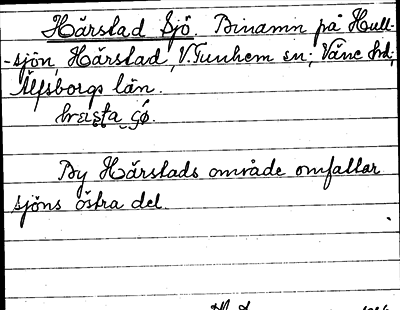 Hårstad Sjö. Binamn på Hull-
-sjön Hårstad, V. Tunhem sn; Väne hd;
Älfsborgs län.
By Hårstads område omfattar
sjöns östra del.